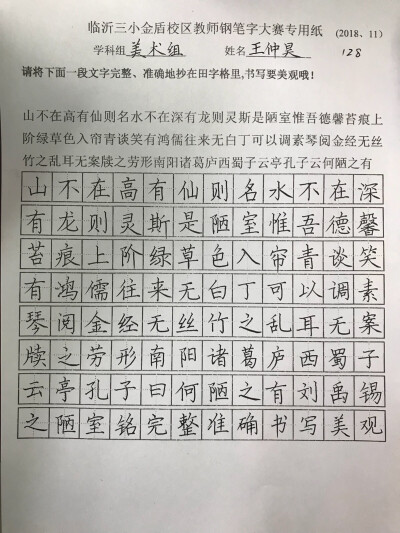 临沂三小金盾校区教师钢笔字大赛专用纸 (2018、11)
学科组 美术组 姓名 王仲昊 128
请将下面一段文字完整、准确地抄在田字格里,书写要美观哦!
山不在高有仙则名水不在深有龙则灵斯是陋室惟吾德馨苔痕上
阶绿草色入帘青谈笑有鸿儒往来无白丁可以调素琴阅金经无丝
竹之乱耳无案牍之劳形南阳诸葛庐西蜀子云亭孔子云何陋之有
山不在高有仙则名水不在深
有龙则灵斯是陋室惟吾德馨
苔痕上阶绿草色入帘青谈笑
有鸿儒往来无白丁可以调素
琴阅金经无丝竹之乱耳无案
牍之劳形南阳诸葛庐西蜀子
云亭孔子曰何陋之有刘禹锡
之陋室铭完整准确书写美观